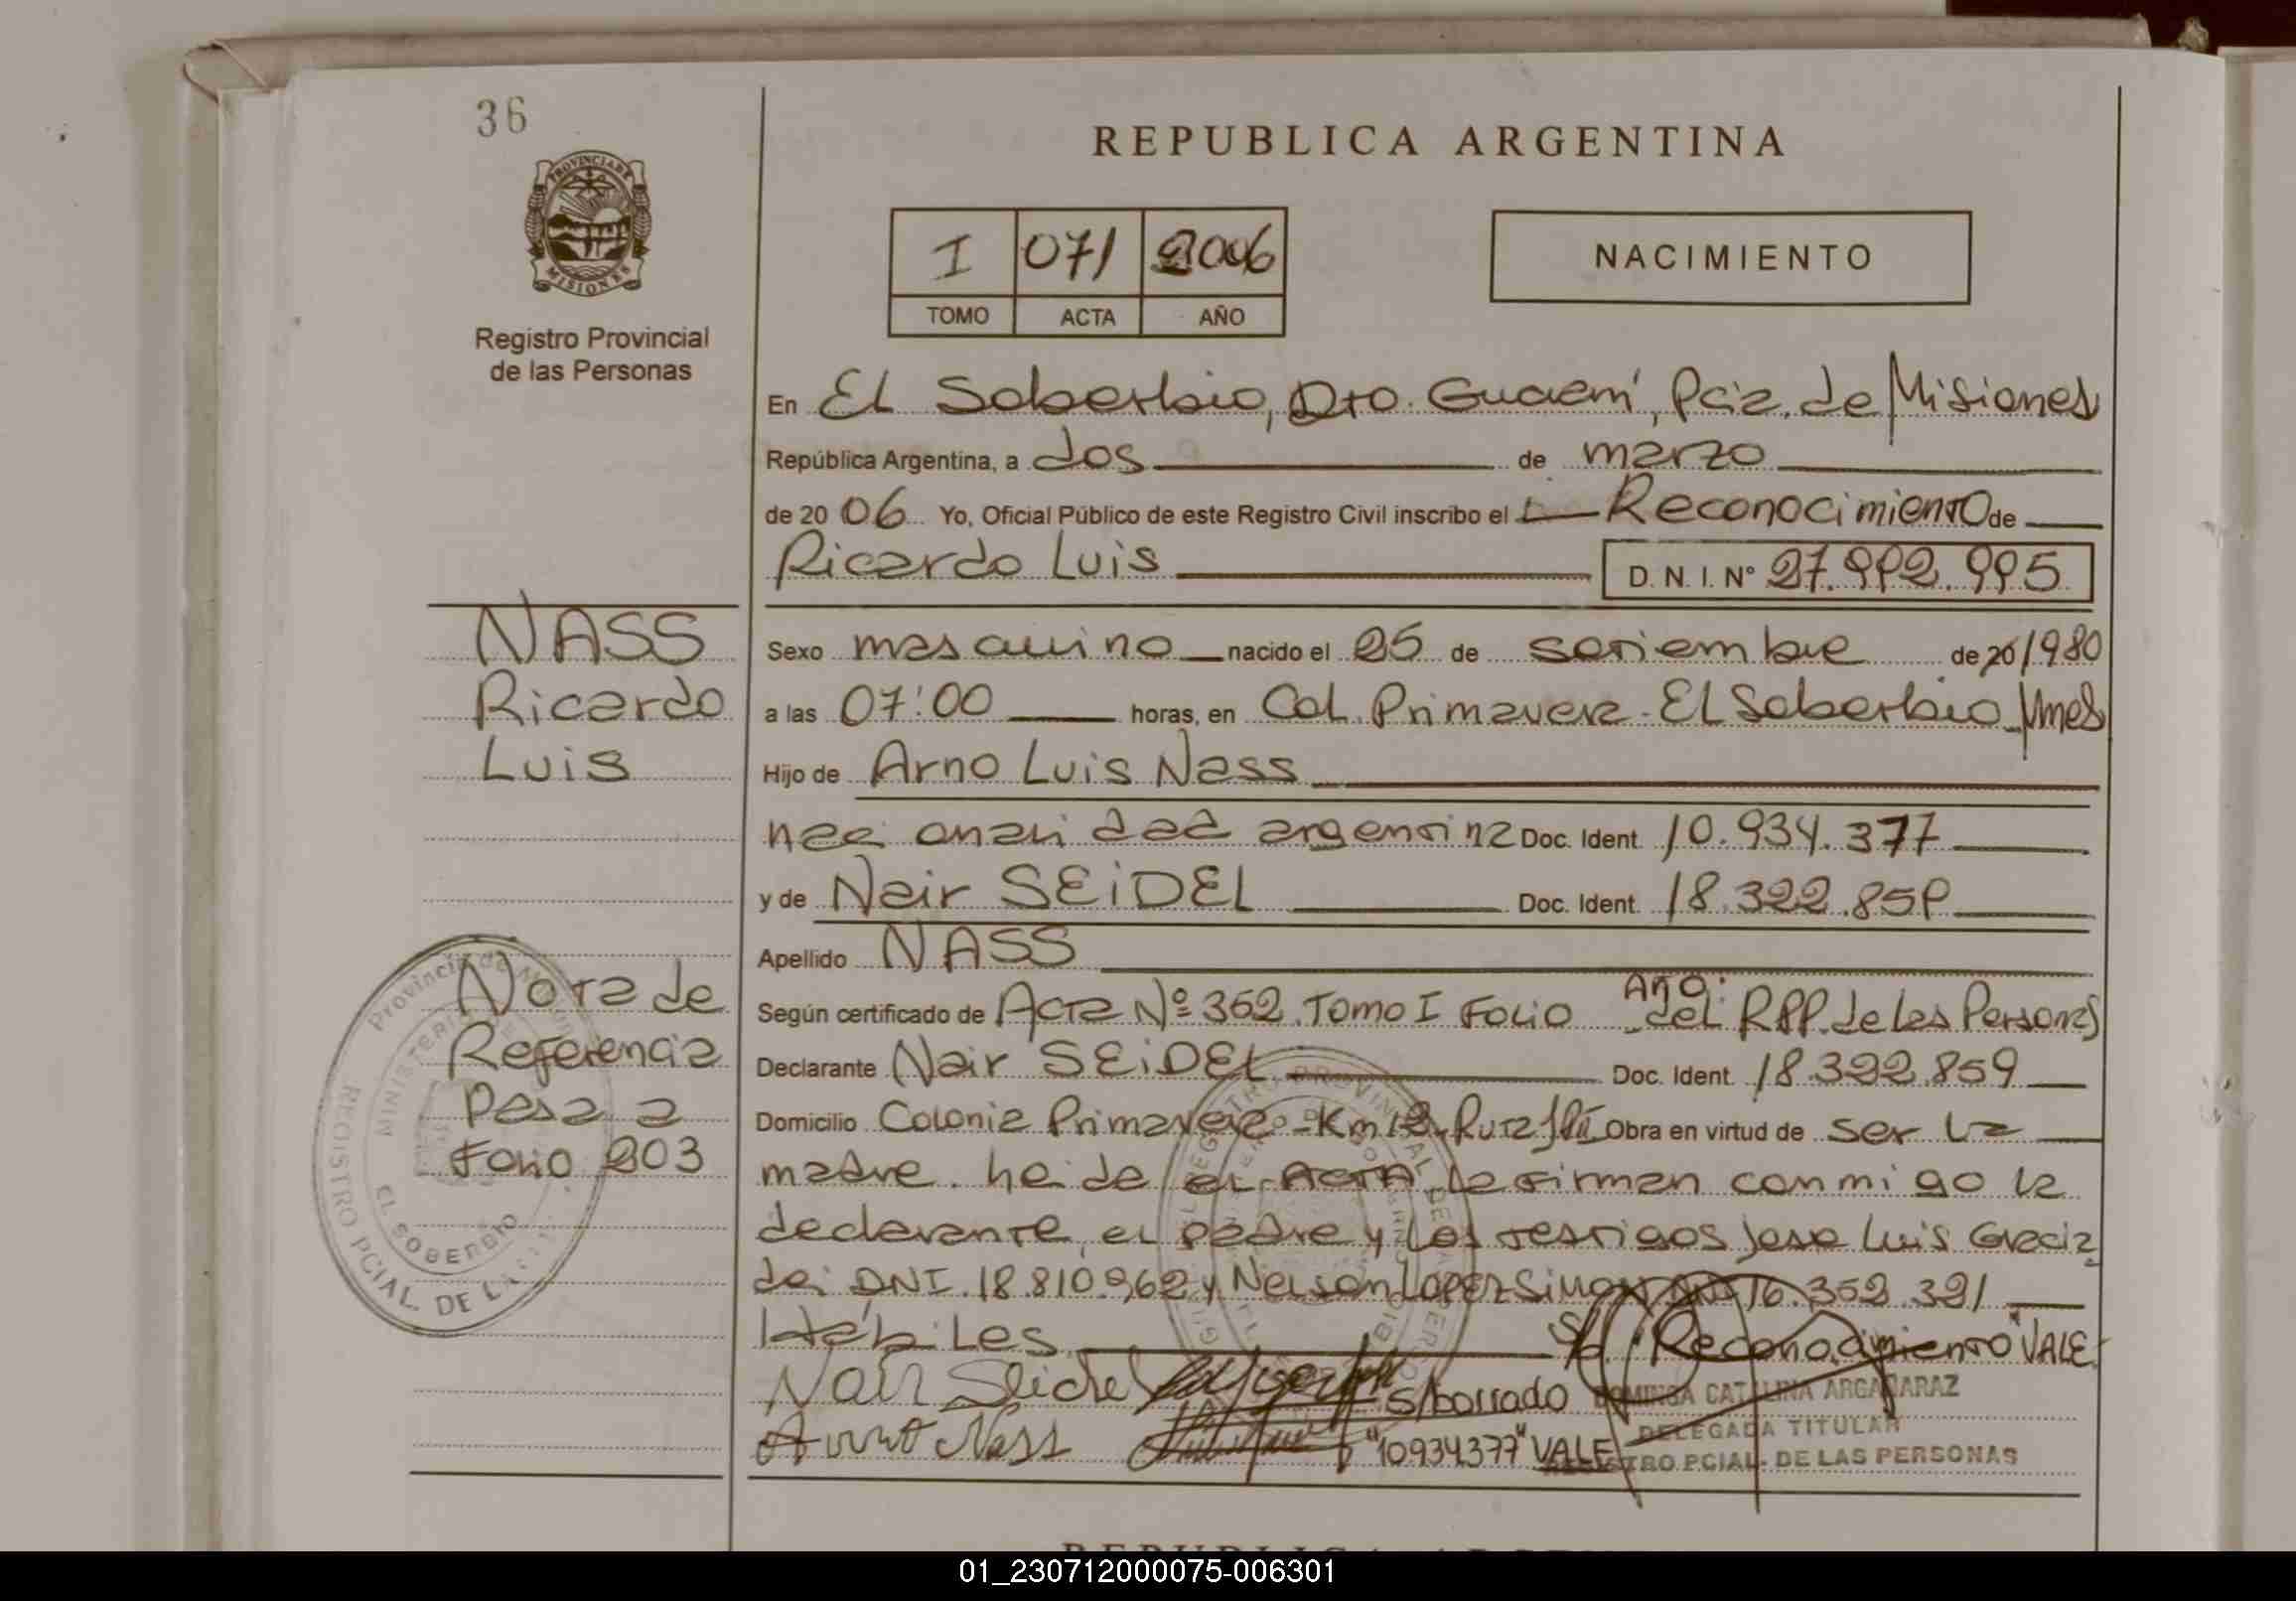 36
REPUBLICA ARGENTINA
PROVINCIA DE
MISIONES
Registro Provincial
de las Personas
I 071 2006
TOMO ACTA AÑO
NACIMIENTO
En El Soberbio, Dto. Guaraní, Pcia. de Misiones
República Argentina, a dos de marzo
de 20 06 Yo, Oficial Público de este Registro Civil inscribo el Reconocimiento de
Ricardo Luis D. N. I. N° 27.992.995
NASS
Ricardo
Luis
Sexo masculino nacido el 25 de setiembre de 20 1980
a las 07:00 horas, en Col. Primavera - El Soberbio Mnes
Hijo de Arno Luis Nass
nacionalidad argentina Doc. Ident. 10.934.377
y de Nair SEIDEL Doc. Ident. 18.322.859
Apellido NASS
Año:
Según certificado de Acta Nº 362 Tomo I Folio del RPP. de las Personas
Declarante Nair SEIDEL Doc. Ident. 18.322.859
Domicilio Colonia Primavera - Km 12 - Ruta Obra en virtud de ser la
madre. el ACTA, la firman conmigo la
declarante, el padre y los testigos Jose Luis Gracia
DNI. 18.810.962 y Nelson LOPEZ Simon DNI 16.352.321
Hábiles S/ "Reconocimiento" VALE
Nair Seidel S/borrado
Arno Nass "10934377" VALE
Nota de
Referencia
Pasa a
Folio 203
Provincia de
MINISTERIO DE
EL SOBERBIO
REGISTRO PCIAL. DE LAS
DOMINGA CATALINA ARGAÑARAZ
DELEGADA TITULAR
REGISTRO PCIAL. DE LAS PERSONAS
01_230712000075-006301